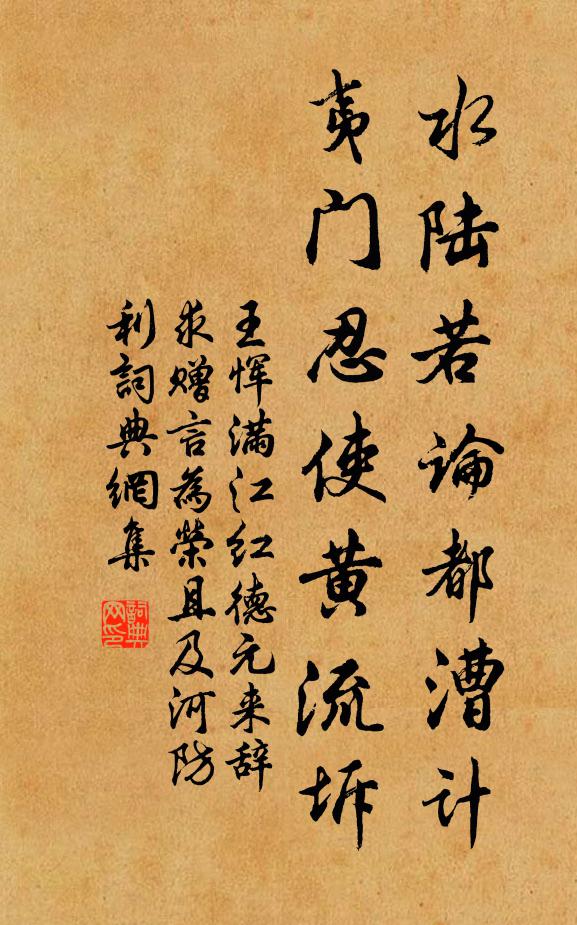 水陆若论都漕计
夷门忍使黄流坼
王恽满江红德元来辞
求赠言为荣且及河防
利詞典網集
詞典网印